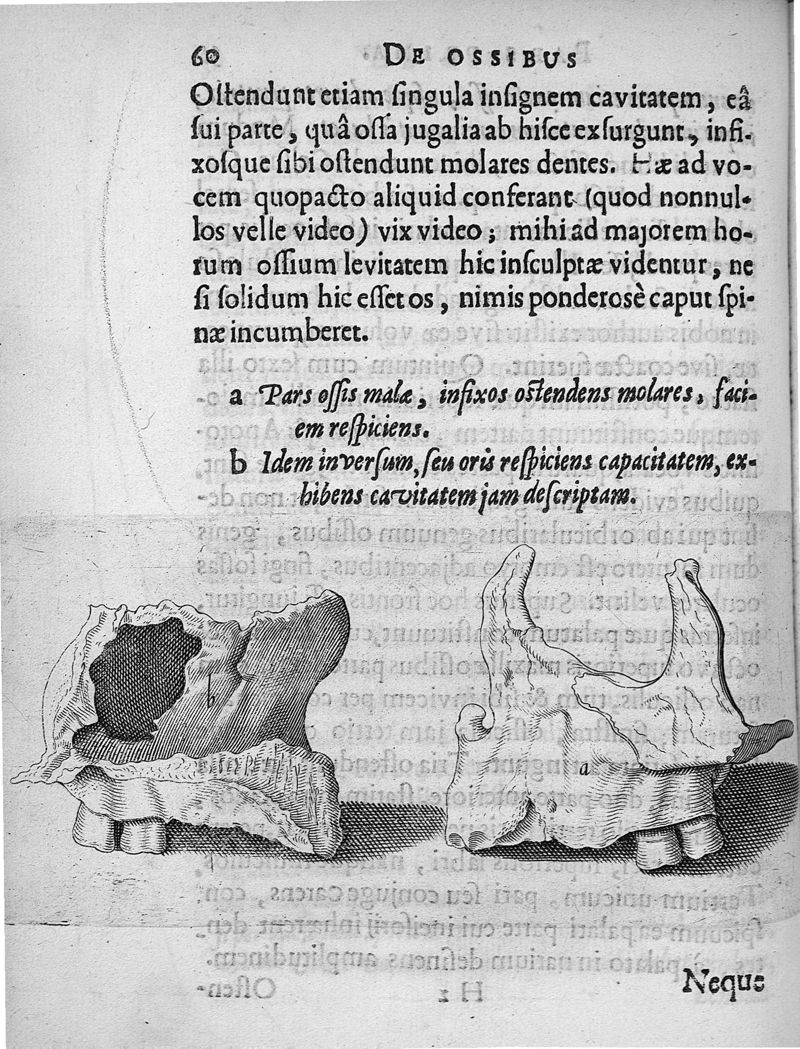 60 DE OSSIBUS
Oſtendunt etiam ſingula inſignem cavitatem, eâ
ſui parte, quâ oſſa jugalia ab hiſce exſurgunt, infi-
xoſque ſibi oſtendunt molares dentes. Hæ ad vo-
cem quopacto aliquid conferant (quod nonnul-
los velle video) vix video; mihi ad majorem ho-
rum oſſium levitatem hic inſculptæ videntur, ne
ſi ſolidum hic eſſet os, nimis ponderosè caput ſpi-
næ incumberet.
a Pars oſſis malæ, infixos oſtendens molares, faci-
em reſpiciens.
b Idem inverſum, ſeu oris reſpiciens capacitatem, ex-
hibens cavitatem jam deſcriptam.
b
a
Neque